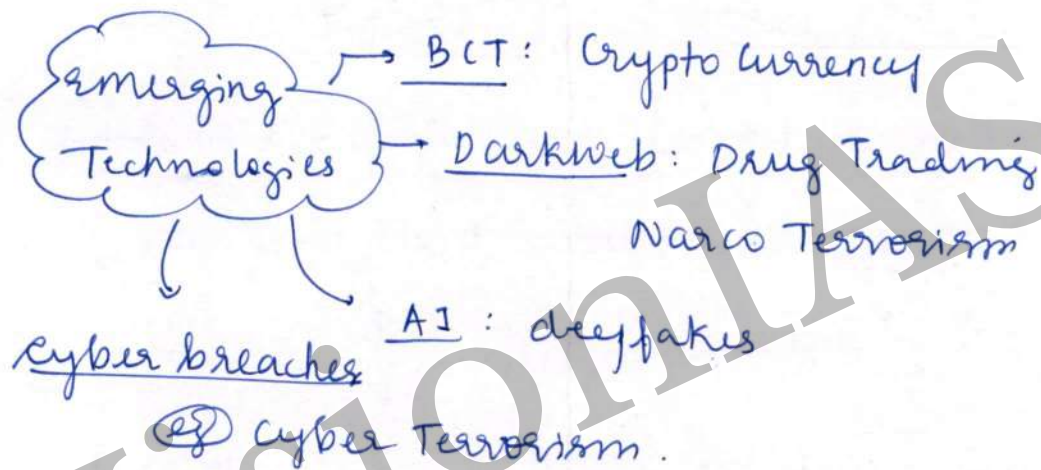 Emerging
Technologies
→ BCT: Crypto Currency
→ Darkweb: Drug Trading
Narco Terrorism
AI: deepfakes
Cyber breaches
eg Cyber Terrorism.
VisionIAS